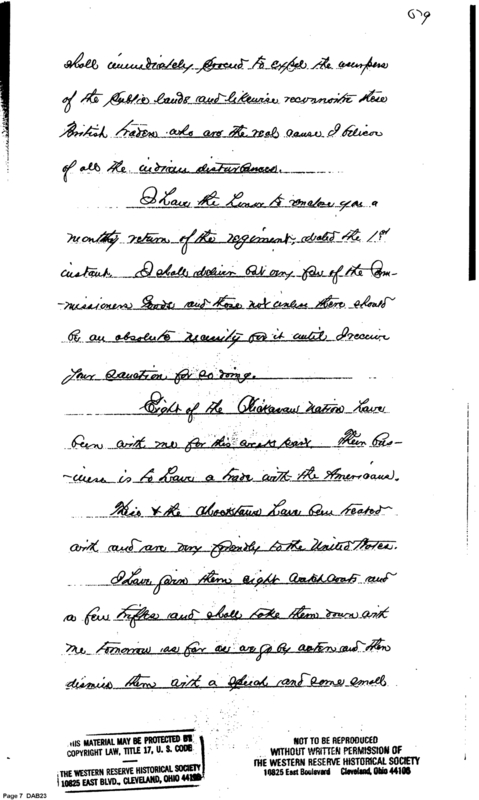 679
shall immediately proceed to expel the usurpers
of the Public lands and likewise reconnoitre those
British traders who are the real cause I believe
of all the indian disturbances.
I have the honor to enclose you a
monthly return of the regiment, dated the 1st
instant. I shall deliver but very few of the Com-
-missioners Goods and those not unless there should
be an absolute necessity for it until I receive
your sanction for so doing.
Eight of the Chickasaw nation have
been with me for this weeks past. Their bus-
-iness is to have a trade with the Americans.
This & the Chocktaws have been treated
with and are very friendly to the United States.
I have given them eight watchcoats and
a few trifles and shall take them down with
me tomorrow as far as we go by water and then
dismiss them with a speech and some small
THIS MATERIAL MAY BE PROTECTED BY
COPYRIGHT LAW, TITLE 17, U. S. CODE
THE WESTERN RESERVE HISTORICAL SOCIETY
10825 EAST BLVD., CLEVELAND, OHIO 44106
NOT TO BE REPRODUCED
WITHOUT WRITTEN PERMISSION OF
THE WESTERN RESERVE HISTORICAL SOCIETY
10825 East Boulevard Cleveland, Ohio 44106
Page 7 DAB23